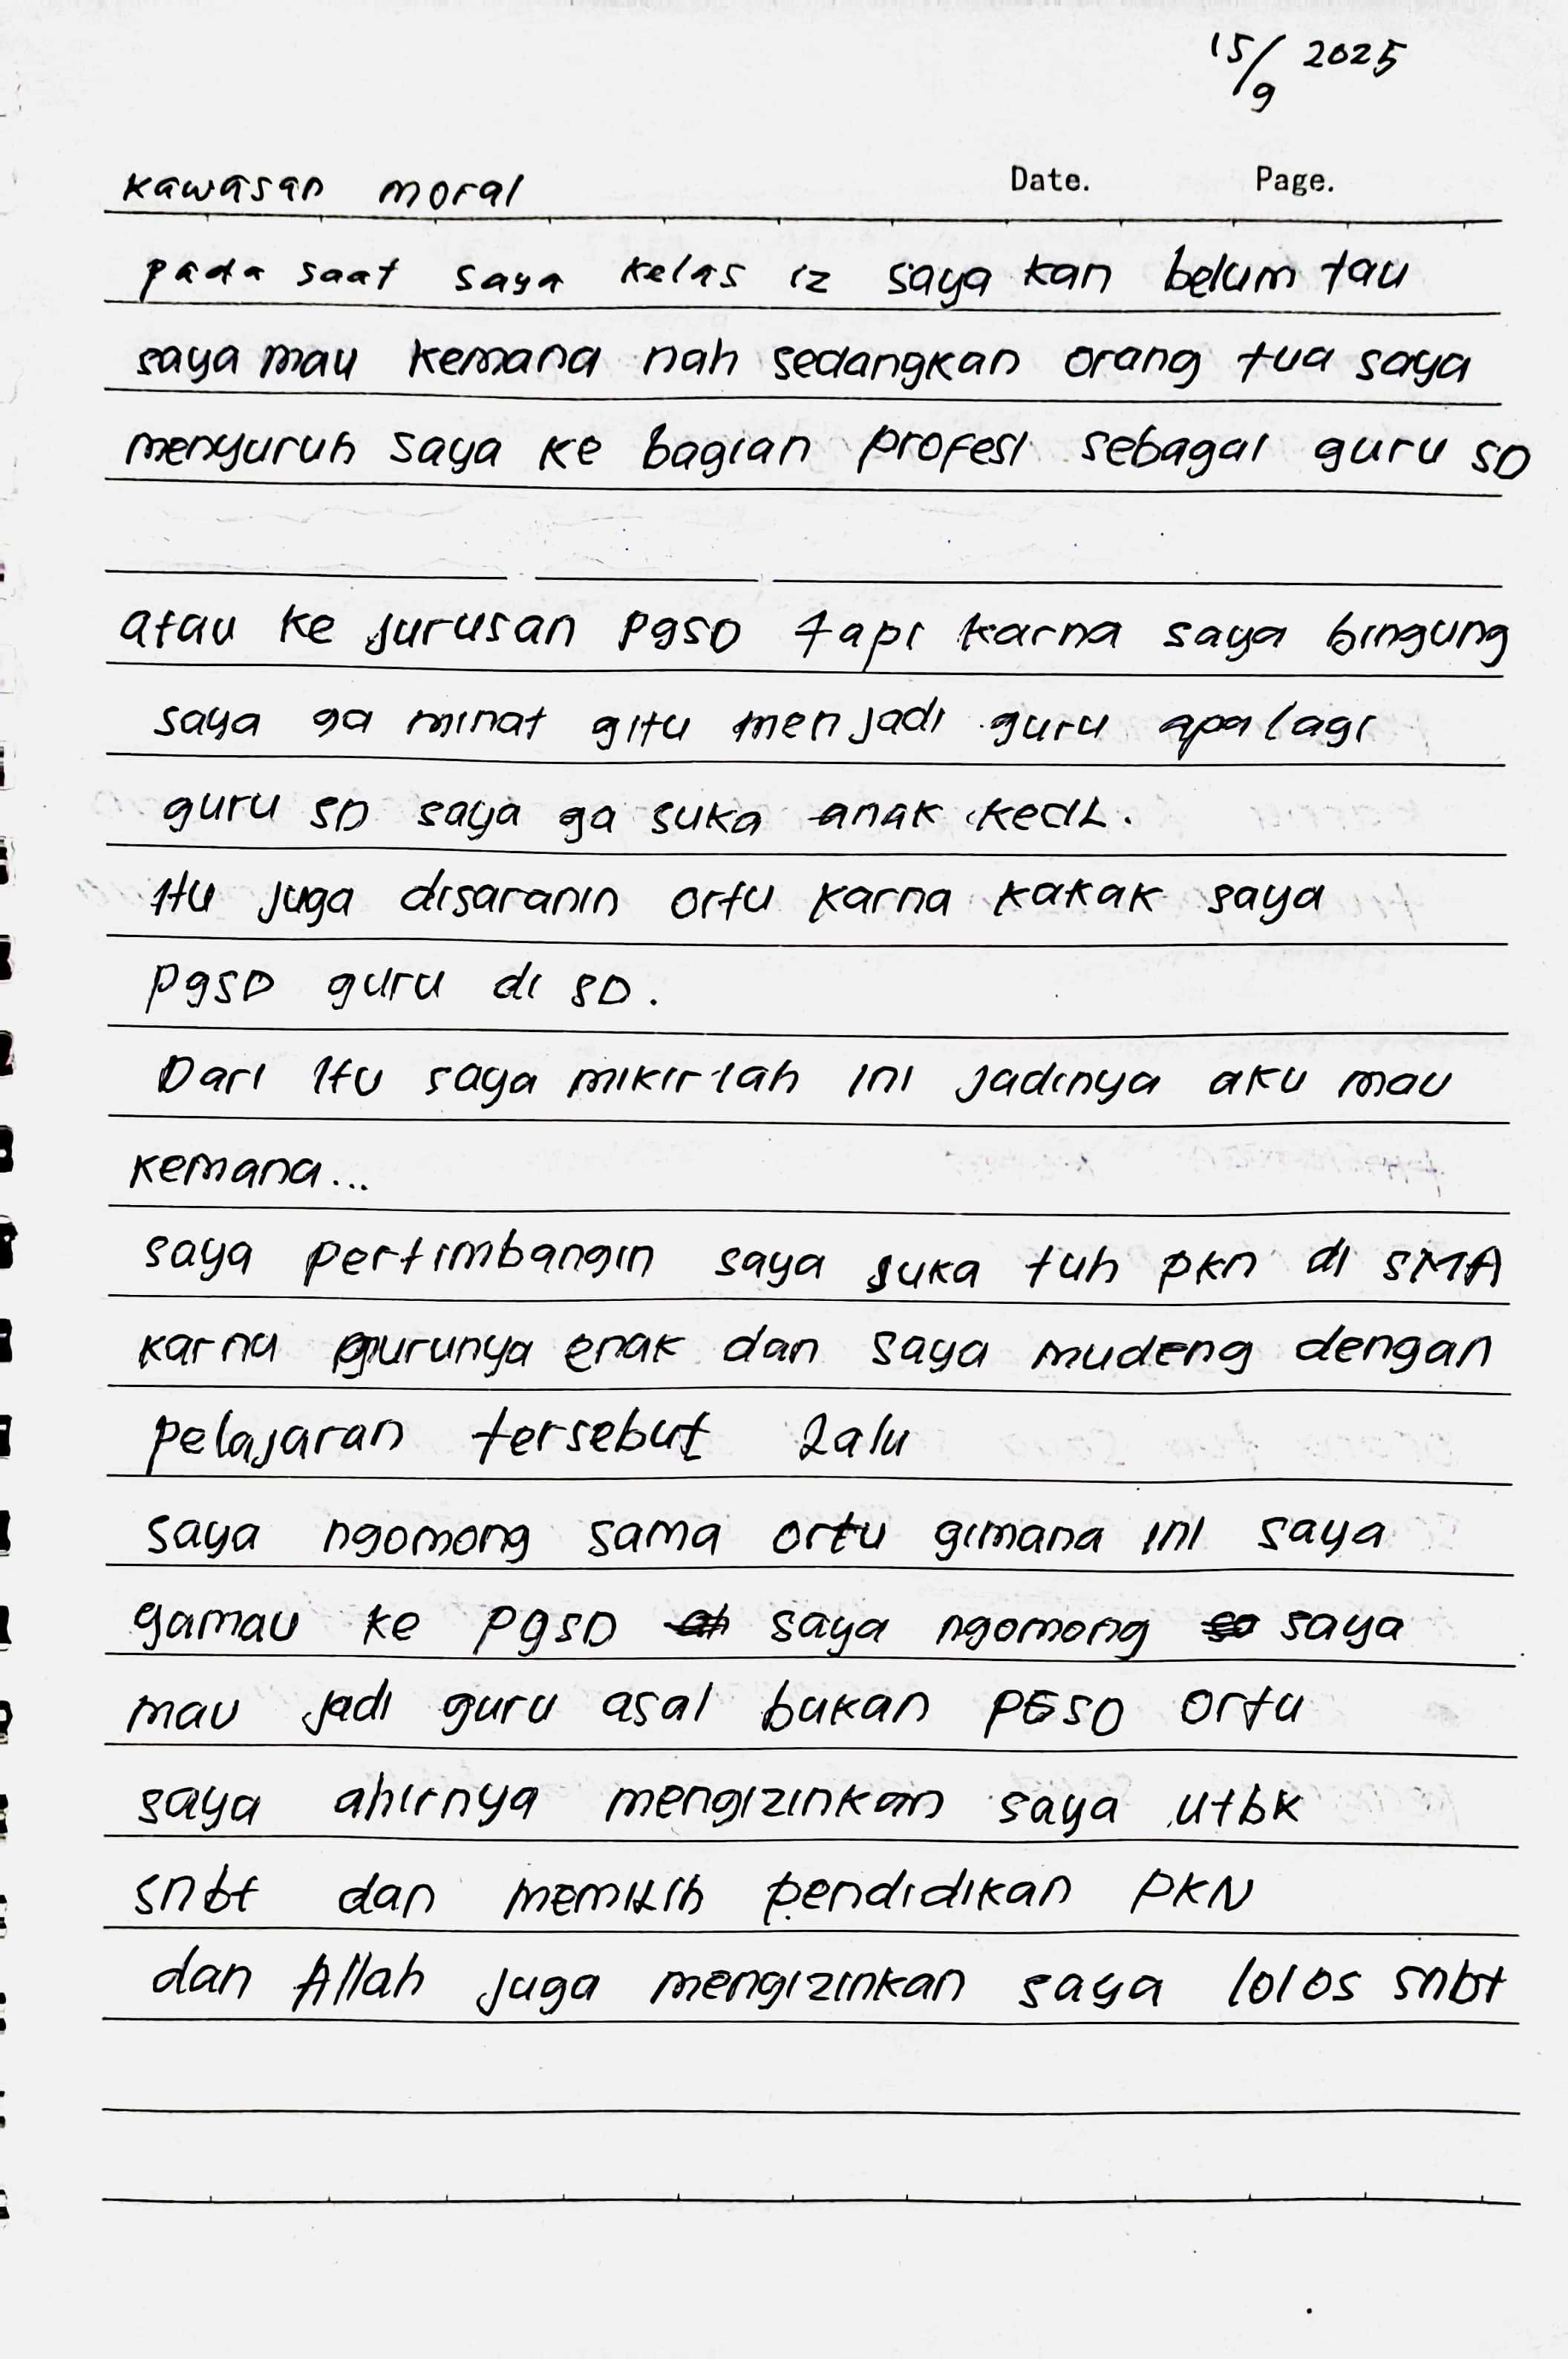 15/9 2025
Date. Page.
Kawasan moral
pada saat saya kelas 12 saya kan belum tau
saya mau kemana nah sedangkan orang tua saya
menyuruh saya ke bagian profesi sebagai guru SD
atau ke jurusan PgSD tapi karna saya bingung
saya ga minat gitu menjadi guru apalagi
guru SD saya ga suka anak kecil.
Itu juga disaranin ortu karna kakak saya
PgSD guru di SD.
Dari itu saya mikirlah ini jadinya aku mau
kemana...
saya pertimbangin saya suka tuh pkn di SMA
karna gurunya enak dan saya mudeng dengan
pelajaran tersebut Lalu
saya ngomong sama ortu gimana ini saya
gamau ke PgSD saya ngomong saya
mau jadi guru asal bukan PGSD ortu
saya ahirnya mengizinkan saya utbk
snbt dan memilih pendidikan PKN
dan Allah juga mengizinkan saya lolos snbt